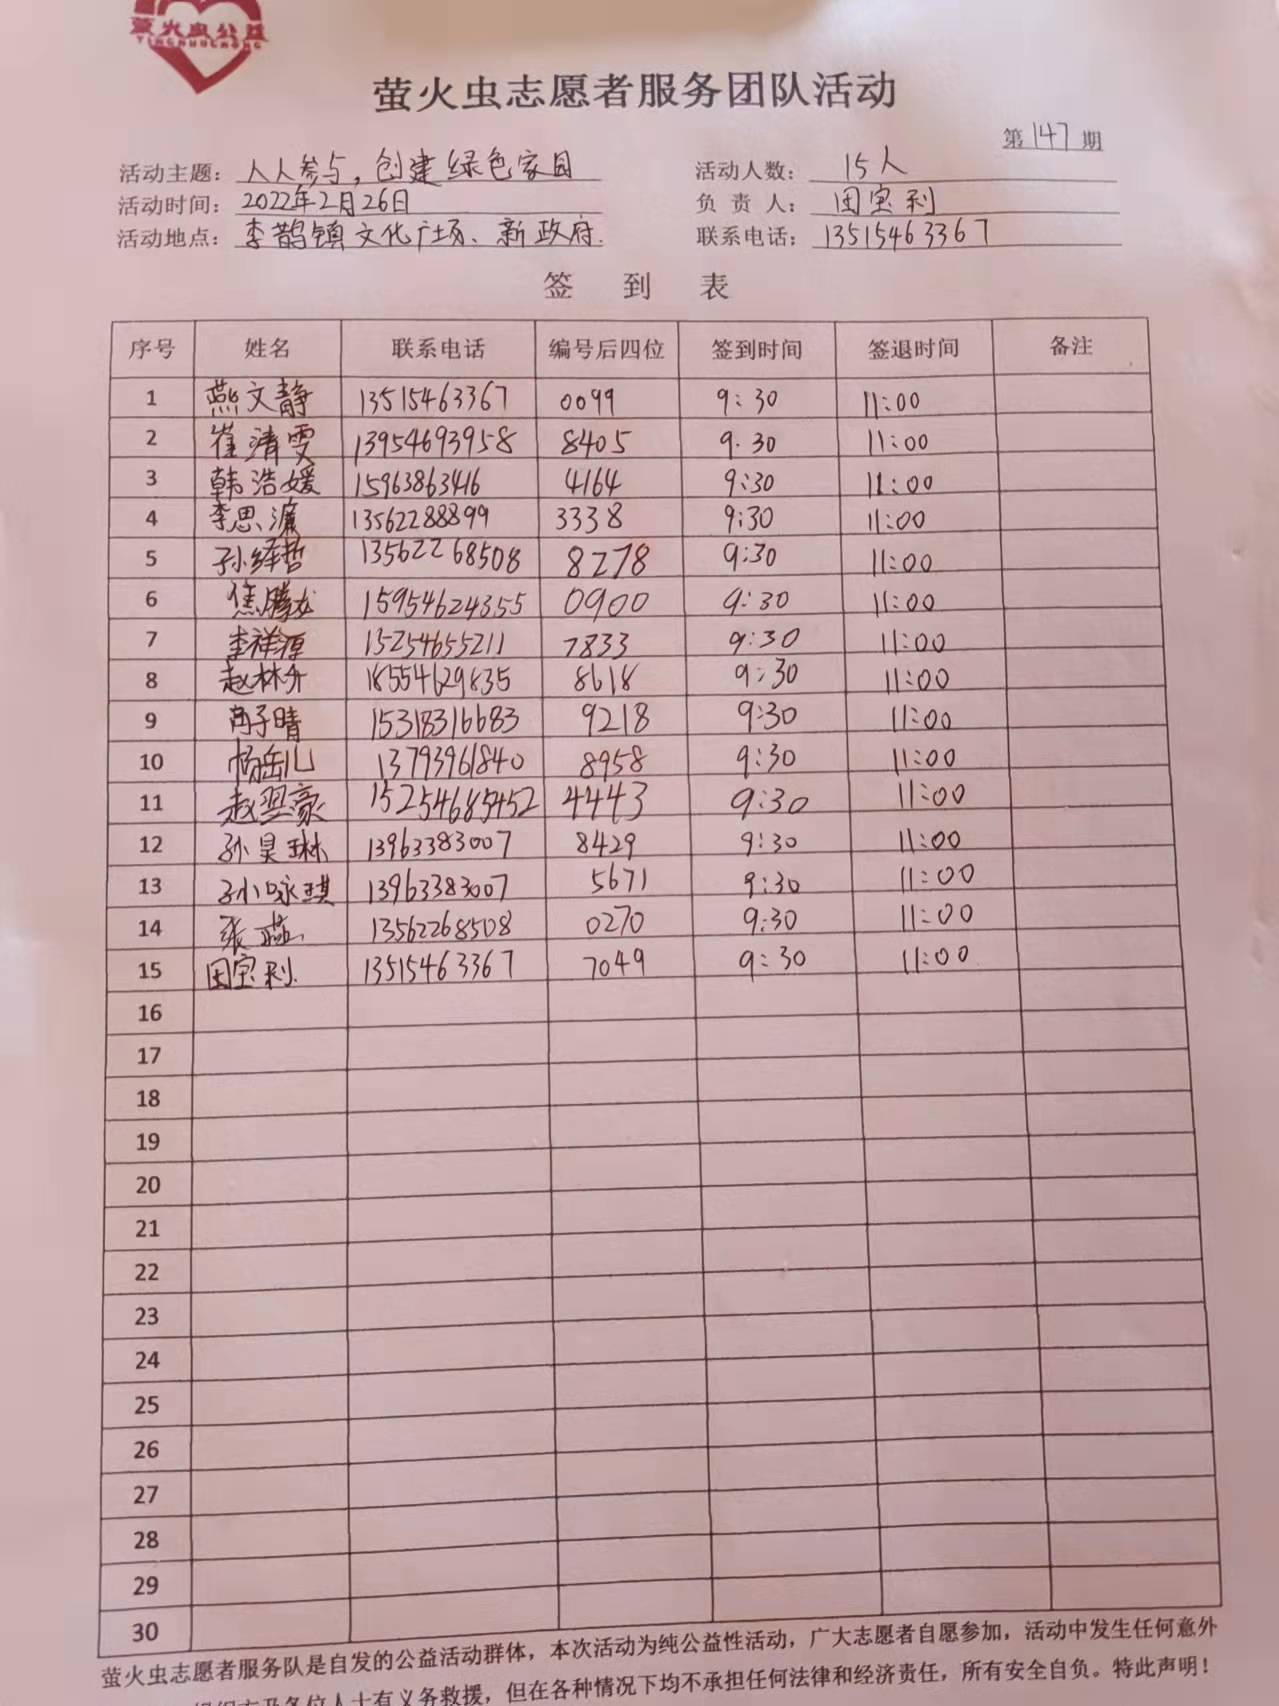 萤火虫公益
YINGHUOCHONG
萤火虫志愿者服务团队活动
第147期
活动主题：人人参与，创建绿色家园 活动人数：15人
活动时间：2022年2月26日 负责人：田宝利
活动地点：李鹊镇文化广场、新政府. 联系电话：13515463367
签到表
序号 姓名 联系电话 编号后四位 签到时间 签退时间 备注
1 燕文静 13515463367 0099 9:30 11:00
2 崔清雯 13954693958 8405 9.30 11:00
3 韩浩媛 15963863416 4164 9:30 11:00
4 李思濂 13562288899 3338 9:30 11:00
5 孙绎哲 13562268508 8278 9:30 11:00
6 焦腾龙 15954624355 0900 9:30 11:00
7 李祥源 15254655211 7833 9:30 11:00
8 赵林夕 18554629835 8618 9:30 11:00
9 肖子晴 15318316683 9218 9:30 11:00
10 杨岳儿 13793961840 8958 9:30 11:00
11 赵翌豪 15254685452 4443 9:30 11:00
12 孙昊琳 13963383007 8429 9:30 11:00
13 孙咏琪 13963383007 5671 9:30 11:00
14 张燕 13562268508 0270 9:30 11:00
15 田宝利. 13515463367 7049 9:30 11:00
16
17
18
19
20
21
22
23
24
25
26
27
28
29
30
萤火虫志愿者服务队是自发的公益活动群体，本次活动为纯公益性活动，广大志愿者自愿参加，活动中发生任何意外
组织方及各位人士有义务救援，但在各种情况下均不承担任何法律和经济责任，所有安全自负。特此声明！